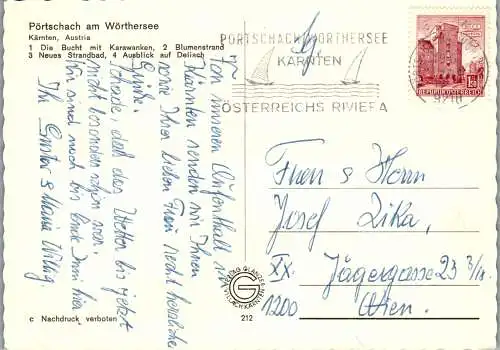 Pörtschach am Wörthersee
Kärnten, Austria
1 Die Bucht mit Karawanken, 2 Blumenstrand
3 Neues Strandbad, 4 Ausblick auf Dellach
PÖRTSCHACH WÖRTHERSEE
KÄRNTEN
ÖSTERREICHS RIVIERA
9210
REPUBLIK ÖSTERREICH
Von unserem Aufenthalt in
Kärnten senden wir Ihnen
sowie Ihrer lieben Frau recht herzliche
Grüße.
Schade, daß das Wetter bis jetzt
nicht besonders schön war.
Wir sind noch bis Ende Juni hier.
Ihr Gustav & Maria
Frau & Herrn
Josef Zika,
XX. Jägergasse 23
1200 Wien.
c Nachdruck verboten
212